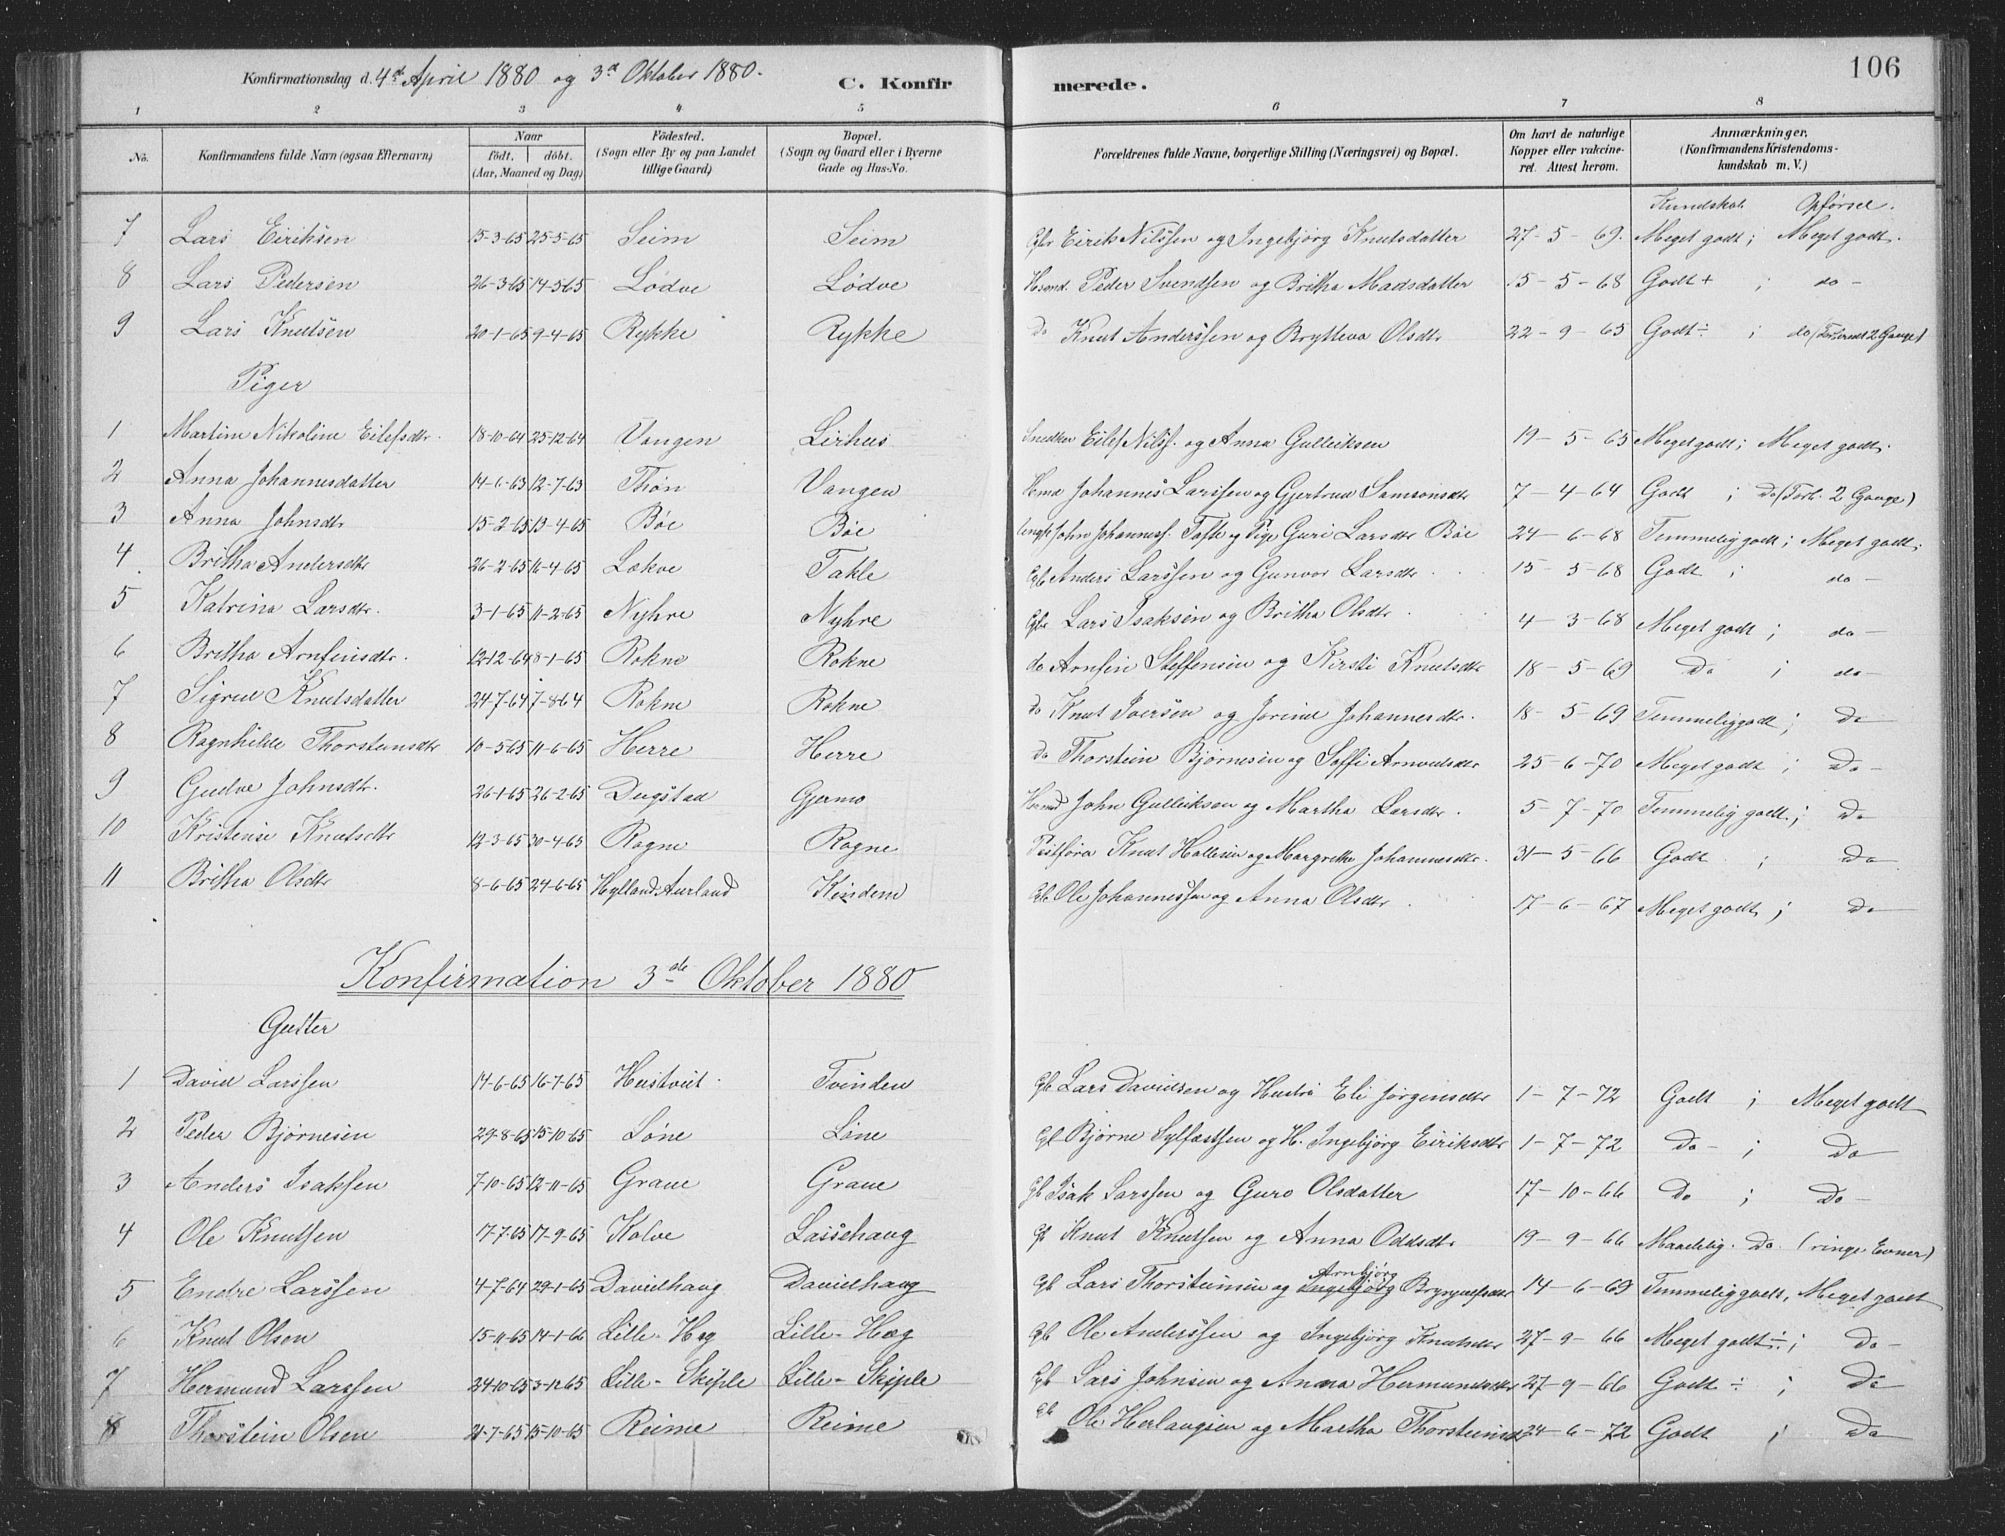 106
Konfirmationsdag d. 4de April 1880 og 3de Oktober 1880.
C. Konfirmerede.
1 2 3 4 5 6 7 8
No. Konfirmandens fulde Navn (ogsaa Efternavn) Naar födt. döbt. (Aar, Maaned og Dag) Födested. (Sogn eller By og paa Landet tillige Gaard) Bopæl. (Sogn og Gaard eller i Byerne Gade og Hus-No. Forældrenes fulde Navne, borgerlige Stilling (Næringsvei) og Bopæl. Om havt de naturlige Kopper eller vakcineret. Attest herom. Anmærkninger. (Konfirmandens Kristendomskundskab m. V.)
Kundskab. Opførsel.
7 Lars Eiriksen 15-3-65 25-5-65 Seim Seim Gbr Eirik Nilssen og Ingebjørg Knutsdatter 27-5-69. Meget godt; Meget godt.
8 Lars Pedersen 26-3-65 14-5-65 Lødve Lødve Husmd. Peder Svendsen og Britha Madsdatter 15-5-68 Godt + ; do -
9 Lars Knutsen 20-1-65 9-4-65 Rykke Rykke do Knut Anderssen og Brytteva Olsdtr 22-9-65 Godt ÷ ; do (2 Gange)
Piger
1 Martine Nikoline Eilefsdtr. 18-10-64 25-12-64 Vangen Lirhus Snedker Eilef Nilss. og Anna Gulleiksen 19-5-65 Meget godt; Meget godt.
2 Anna Johannesdatter 14-6-63 12-7-63 Thøn Vangen Hmd Johannes Larssen og Gjertrud Samsonsdtr 7-4-64 Godt ; Do (Forb. 2 Gange)
3 Anna Johnsdtr 15-2-65 13-4-65 Bøe Bøe Ungk. John Johanness. Tofte og Pige Guri Larsdtr Bøe 24-6-68 Temmelig godt; Meget godt;
4 Britha Andersdtr 26-2-65 16-4-65 Løkve Takle Gb Anders Larssen og Gunvor Larsdtr 15-5-68 Godt ; do -
5 Katrina Larsdtr. 3-1-65 11-2-65 Nyhre Nyhre Gbr Lars Isaksen og Britha Olsdtr 4-3-68 Meget godt ; do -
6 Britha Arnfinsdtr. 12-12-64 8-1-65 Rokne Rokne do Arnfin Steffensen og Kirsti Knutsdtr 18-5-69 Do ; do -
7 Sigrid Knutsdatter 24-7-64 7-8-64 Rokne Rokne do Knut Iversen og Jorind Johannesdtr. 18-5-69 Temmelig godt ; Do
8 Ragnhilde Thorsteinsdtr 10-5-65 11-6-65 Herre Herre do Thorstein Bjørnesen og Soffi Arnvedsdtr 25-6-70 Meget godt ; Do -
9 Gudve Johnsdtr. 26-1-65 26-2-65 Dugstad Gjermo Husmd John Gulleiksen og Martha Larsdtr. 5-7-70 Temmelig godt. ; Do
10 Kristense Knutsdtr 12-3-65 30-4-65 Rogne Rogne Knut Hallesen og Margrethe Johannesdtr. 31-5-66 Godt ; Do
11 Britha Olsdtr 8-6-65 24-6-65 Hylland i Aurland Kindem Gb Ole Johannessen og Anna Olsdtr 17-6-67 Meget godt ; Do
Konfirmation 3de Oktober 1880
Gutter
1 David Larssen 14-6-65 16-7-65 Hustveit. Tvinden Gb Lars Davidsen og Hustru Eli Jørgensdtr 1-7-72 Godt ; Meget godt
2 Peder Bjørnesen 29-8-65 15-10-65 Løne Løne Gb Bjørne Sylfæstsen og H. Ingebjørg Eiriksdtr 1-7-72 Do - ; Do
3 Anders Isaksen 7-10-65 12-11-65 Graue Graue Gb Isak Larssen og Guro Olsdatter 17-10-66 Do ; Do -
4 Ole Knutsen 17-7-65 17-9-65 Kolve Lassehaug Gb Knut Knutsen og Anna Oddsdtr 19-9-66 Maadelig. Do. (ringe Evner)
5 Endre Larssen 4-7-64 29-1-65 Davidhaug Davidhaug Gb Lars Thorsteinsen og Ingebjørg Arnbjørg Brynjulfsdtr 14-6-69 Temmelig godt, Meget godt
6 Knut Olsen 15-11-65 14-1-66 Lille-Høg Lille-Høg Gb Ole Anderssen og Ingebjørg Knutsdtr 27-9-66 Meget godt ÷ ; Do -
7 Hermund Larssen 24-10-65 3-12-65 Lille-Skiple Lille-Skiple Gb Lars Johnsen og Anna Hermundsdtr 27-9-66 Godt ÷ ; Do
8 Thorstein Olsen 21-7-65 15-10-65 Reime Reime Gb Ole Herlaugsen og Martha Thorsteinsd 24-6-72 Godt ; Do